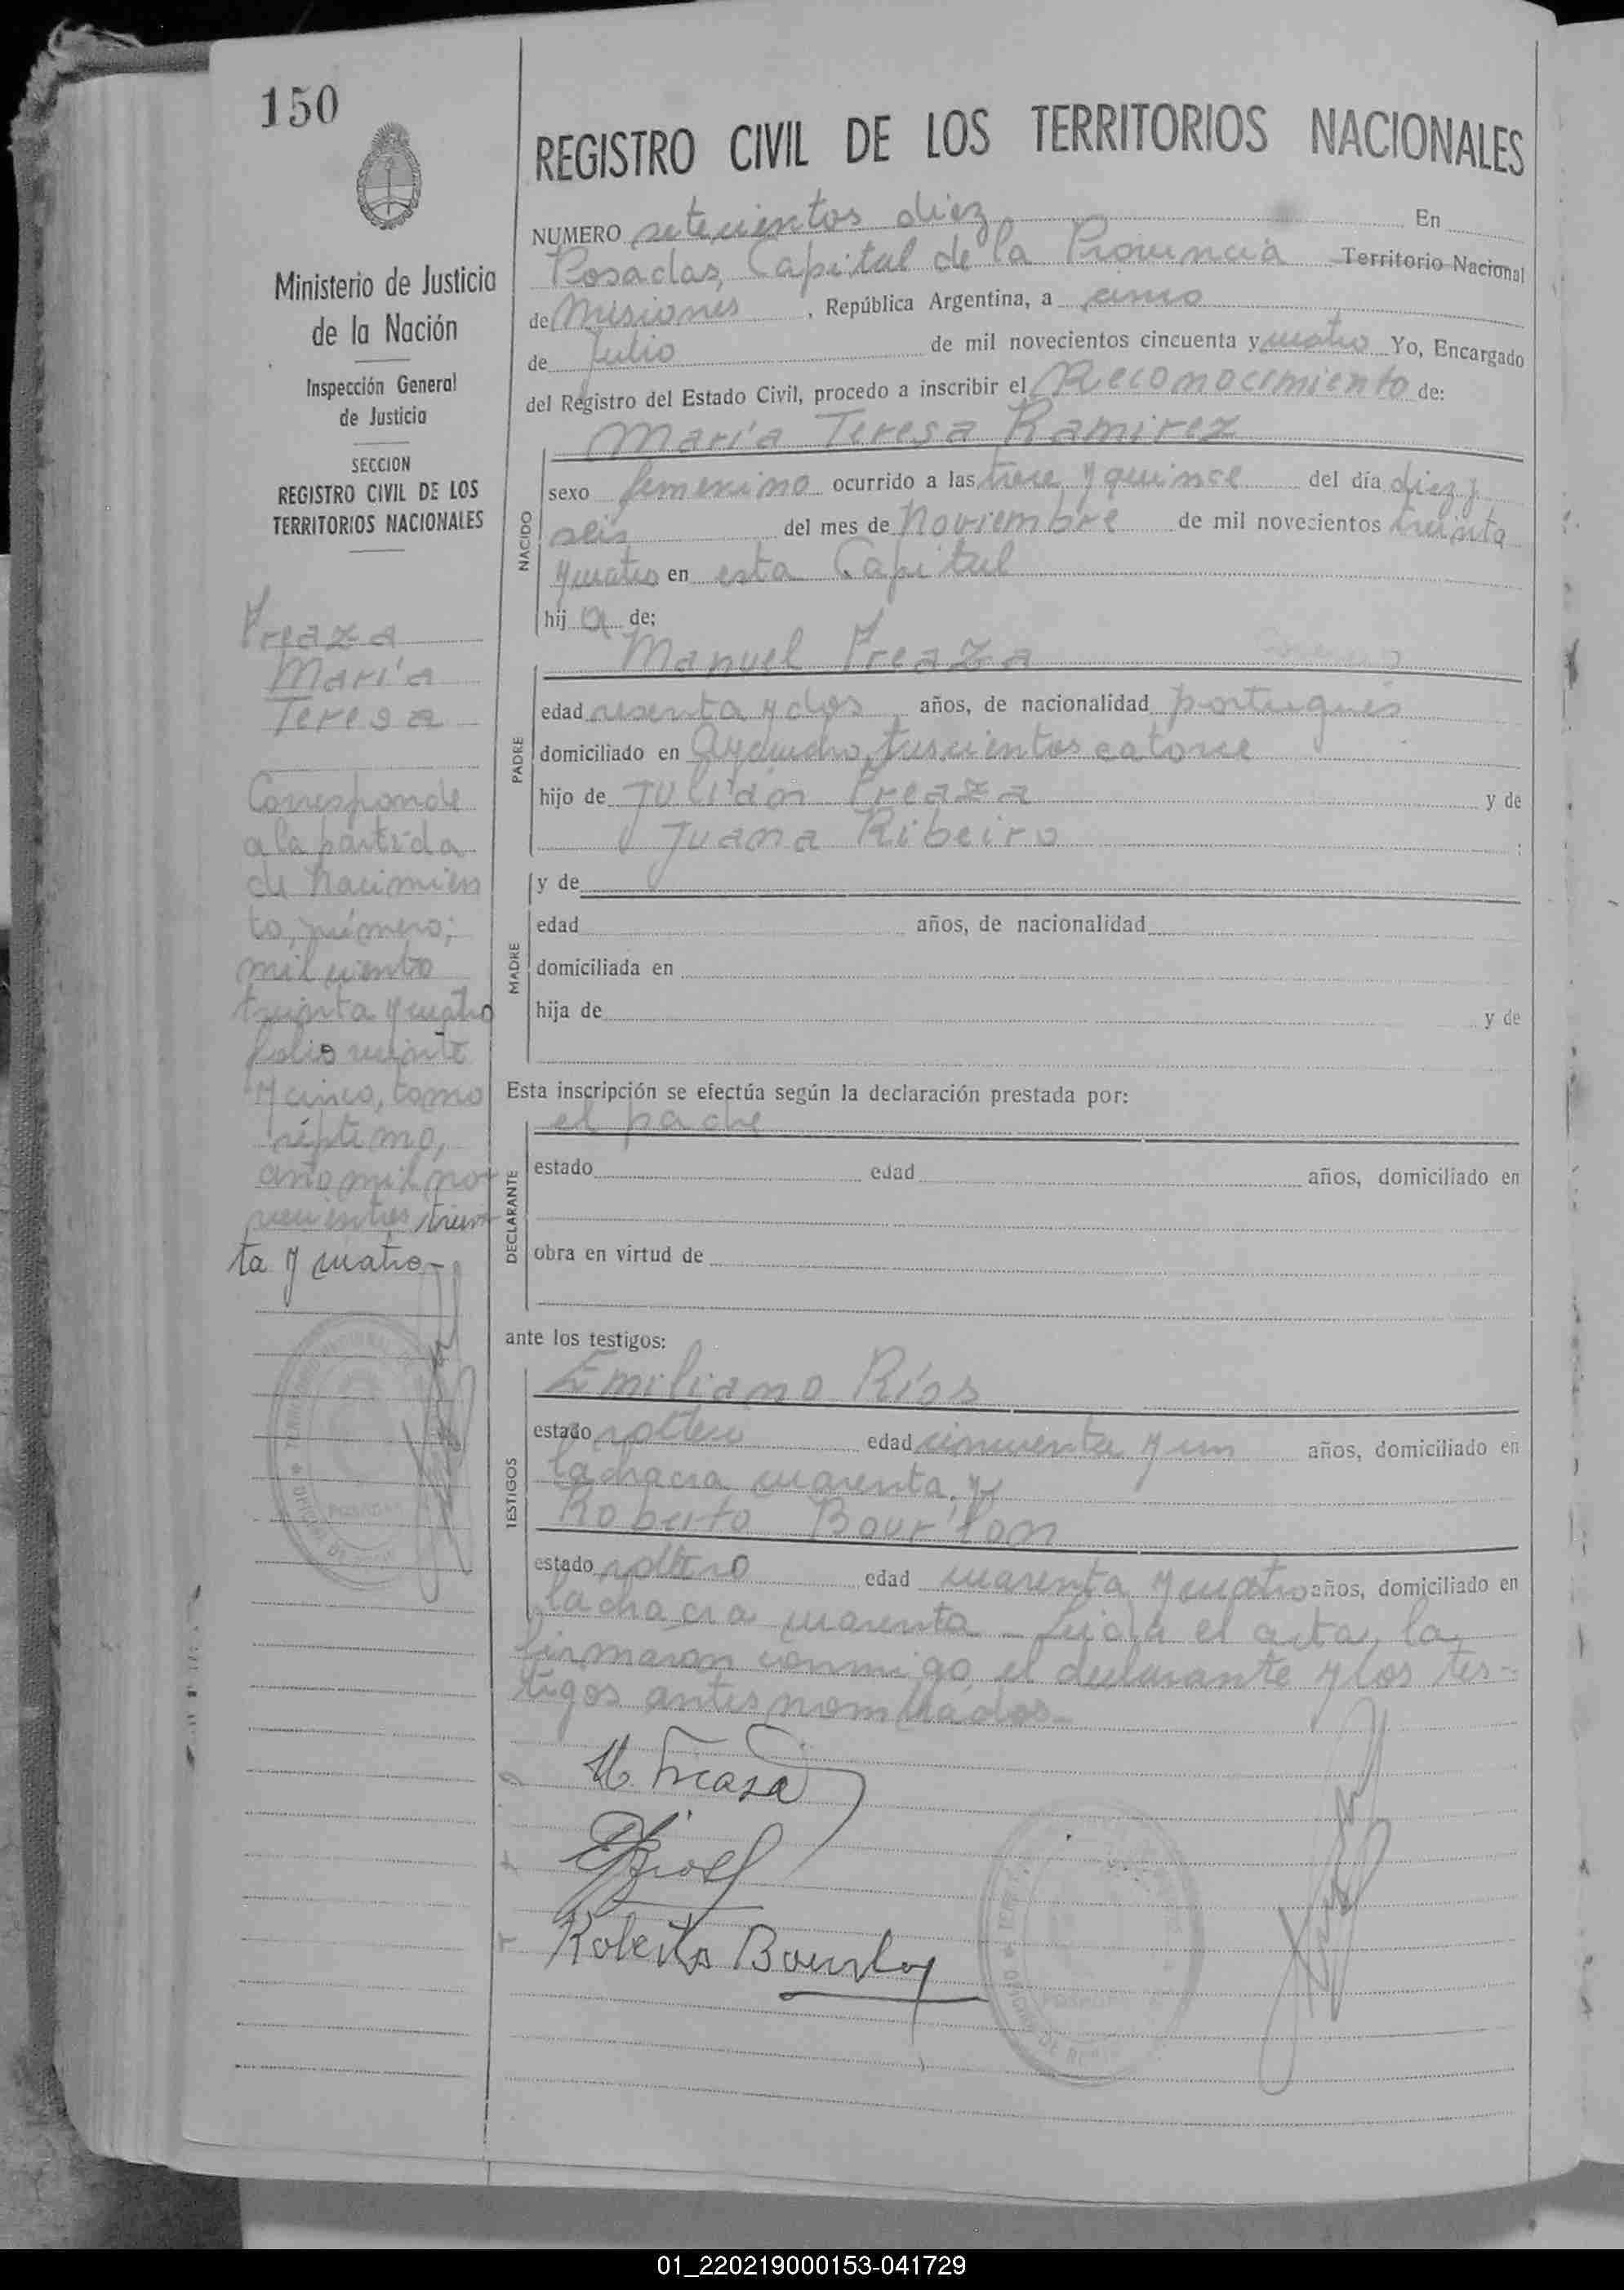 150
Ministerio de Justicia
de la Nación
Inspección General
de Justicia
SECCION
REGISTRO CIVIL DE LOS
TERRITORIOS NACIONALES
Freaza
María
Teresa
Corresponde
a la partida
de nacimien
to, número;
mil ciento
treinta y cuatro
folio veinte
y cinco, tomo
séptimo,
año mil no-
vecientos trein-
ta y cuatro-
REGISTRO CIVIL DE LOS TERRITORIOS NACIONALES
NUMERO setecientos diez En
Posadas, Capital de la Provincia Territorio Nacional
de Misiones, República Argentina, a cinco
de Julio de mil novecientos cincuenta y cuatro Yo, Encargado
del Registro del Estado Civil, procedo a inscribir el Reconocimiento de:
María Teresa Ramirez
NACIDO
sexo femenino ocurrido a las trece y quince del día diez y
seis del mes de Noviembre de mil novecientos treinta
y cuatro en esta Capital
hij a de:
Manuel Freaza
PADRE
edad sesenta y dos años, de nacionalidad portugués
domiciliado en Ayacucho trescientos catorce
hijo de Julián Freaza y de
Juana Ribeiro ;
y de
MADRE
edad años, de nacionalidad
domiciliada en
hija de y de
Esta inscripción se efectúa según la declaración prestada por:
el padre
DECLARANTE
estado edad años, domiciliado en
obra en virtud de
ante los testigos:
Emiliano Ríos
TESTIGOS
estado soltero edad cincuenta y un años, domiciliado en
la chacra cuarenta, y
Roberto Bourlon
estado soltero edad cuarenta y cuatro años, domiciliado en
la chacra cuarenta - Leida el acta, la
firmaron conmigo, el declarante y los tes-
tigos antes nombrados-
M. Freaza
ERios
Roberto Bourlon
POSADAS
01_220219000153-041729